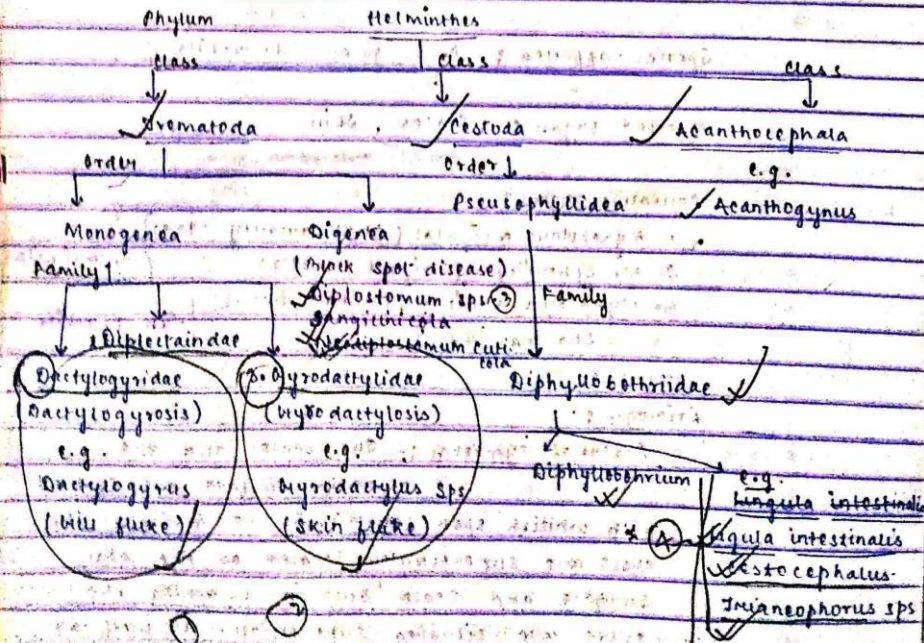 Phylum Helminthes
Class Class Class
Trematoda Cestoda Acanthocephala
Order Order e.g.
Pseusophyllidea Acanthogynus
Monogenea Digenea
Family (Black spot disease)
Diplostomum sps 3 Family
Sanguinicola
Diplectaindae Neodiplostamum cuti-
cola
Dactylogyridae Gyrodactylidae Diphyllobothriidae
(Dactylogyrosis) (Gyrodactylosis)
e.g. e.g.
Dactylogyrus Gyrodactylus sps Diphyllobothrium e.g.
(Gill fluke) (Skin fluke) Lingula intestinalis
* A Ligula intestinalis
Trianeophorus sps
1 2